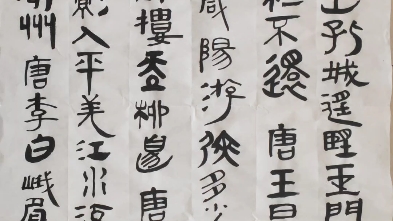 山孤城遥望玉門
不還 唐王昌
咸陽游俠多少
樓垂柳邊 唐
影入平羌江水流
州 唐李白峨眉